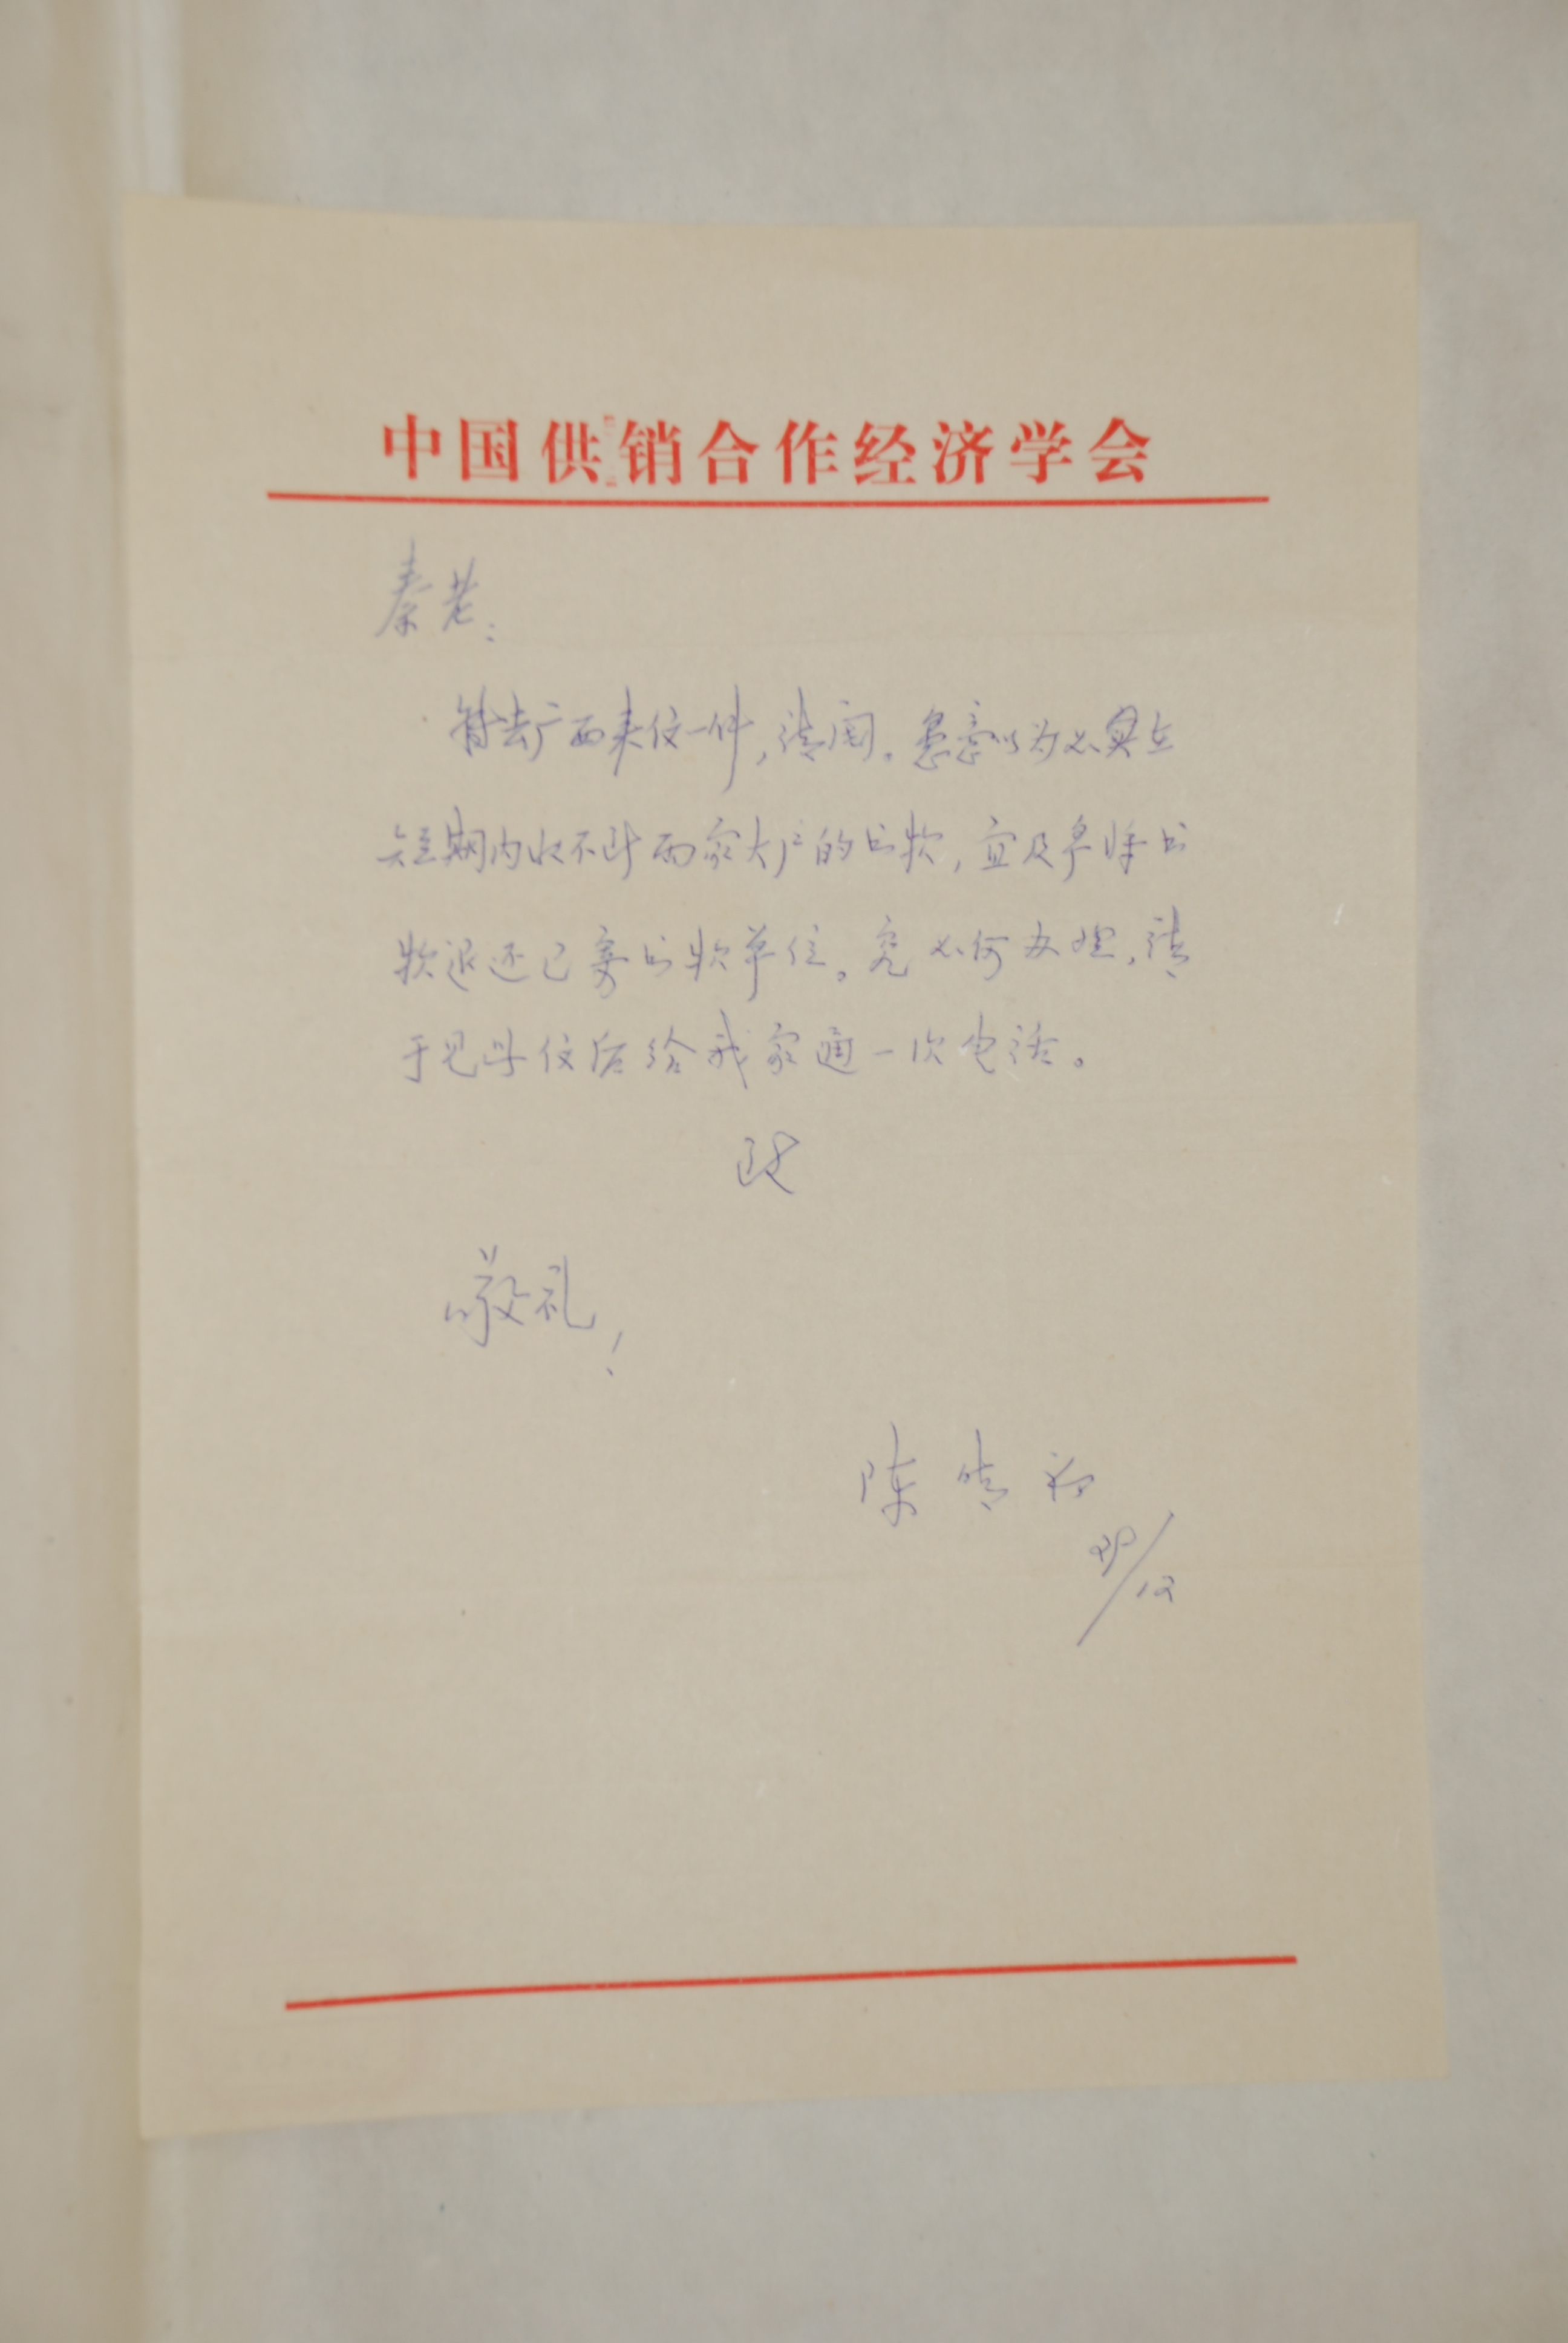 中国供销合作经济学会
秦老:
转去广西来信一件,请阅。愚意以为如真在
短期内收不到两家大户的书款,宜及早将书
款退还已寄书款单位。究如何办理,请
于见此信后给我家通一次电话。
此致
敬礼!
陈
29/12